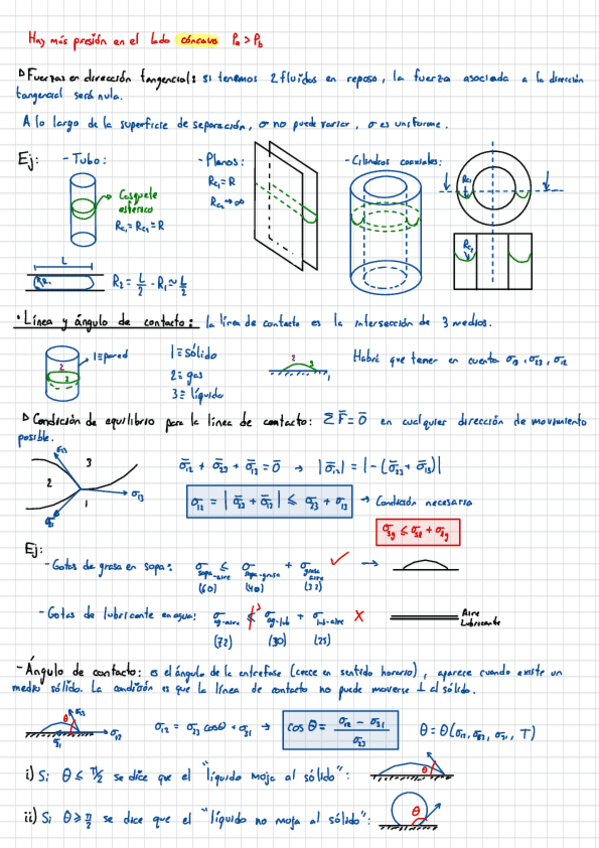 Hay más presión en el lado cóncavo Pa > Pb
Fuerzas en dirección tangencial: si tenemos 2 fluidos en reposo, la fuerza asociada a la dirección
tangencial será nula.
A lo largo de la superficie de separación, σ no puede variar, σ es uniforme.
Ej: - Tubo: - Planos: - Cilindros coaxiales:
Casquete
esférico
Rc₁ = Rc₂ = R
Rc₁ = R
Rc₂ → ∞
Rc₁
Rc₂
L
R₂ = L/2 - R₁ ≈ L/2
· Línea y ángulo de contacto: la línea de contacto es la intersección de 3 medios.
1 ≡ pared
1 ≡ sólido
2 ≡ gas
3 ≡ líquido
2 3 1
Habrá que tener en cuenta σ₁₃, σ₂₃, σ₁₂
Condición de equilibrio para la línea de contacto: ΣF̄ = 0̄ en cualquier dirección de movimiento
posible.
2 3 1 σ₁₃
σ̄₁₂ + σ̄₂₃ + σ̄₁₃ = 0̄ → |σ̄₁₂| = |-(σ̄₂₃ + σ̄₁₃)|
σ₁₂ = |σ̄₂₃ + σ̄₁₃| ≤ σ₂₃ + σ₁₃ → Condición necesaria
Ej:
- Gotas de grasa en sopa: σ sopa-aire ≤ σ sopa-grasa + σ grasa aire ✓ →
(60) (40) (32)
- Gotas de lubricante en agua: σ ag-aire ≰ σ ag-lub + σ lub-aire X
(72) (30) (25)
Aire
Lubricante
- Ángulo de contacto: es el ángulo de la entrefase (crece en sentido horario), aparece cuando existe un
medio sólido. La condición es que la línea de contacto no puede moverse ⊥ al sólido.
θ σ₁₂
σ₁₂ = σ₂₃ cosθ + σ₃₁ → cos θ = (σ₁₂ - σ₃₁) / σ₂₃
i) Si θ ≤ π/2 se dice que el "líquido moja al sólido": θ
ii) Si θ ≥ π/2 se dice que el "líquido no moja al sólido": θ